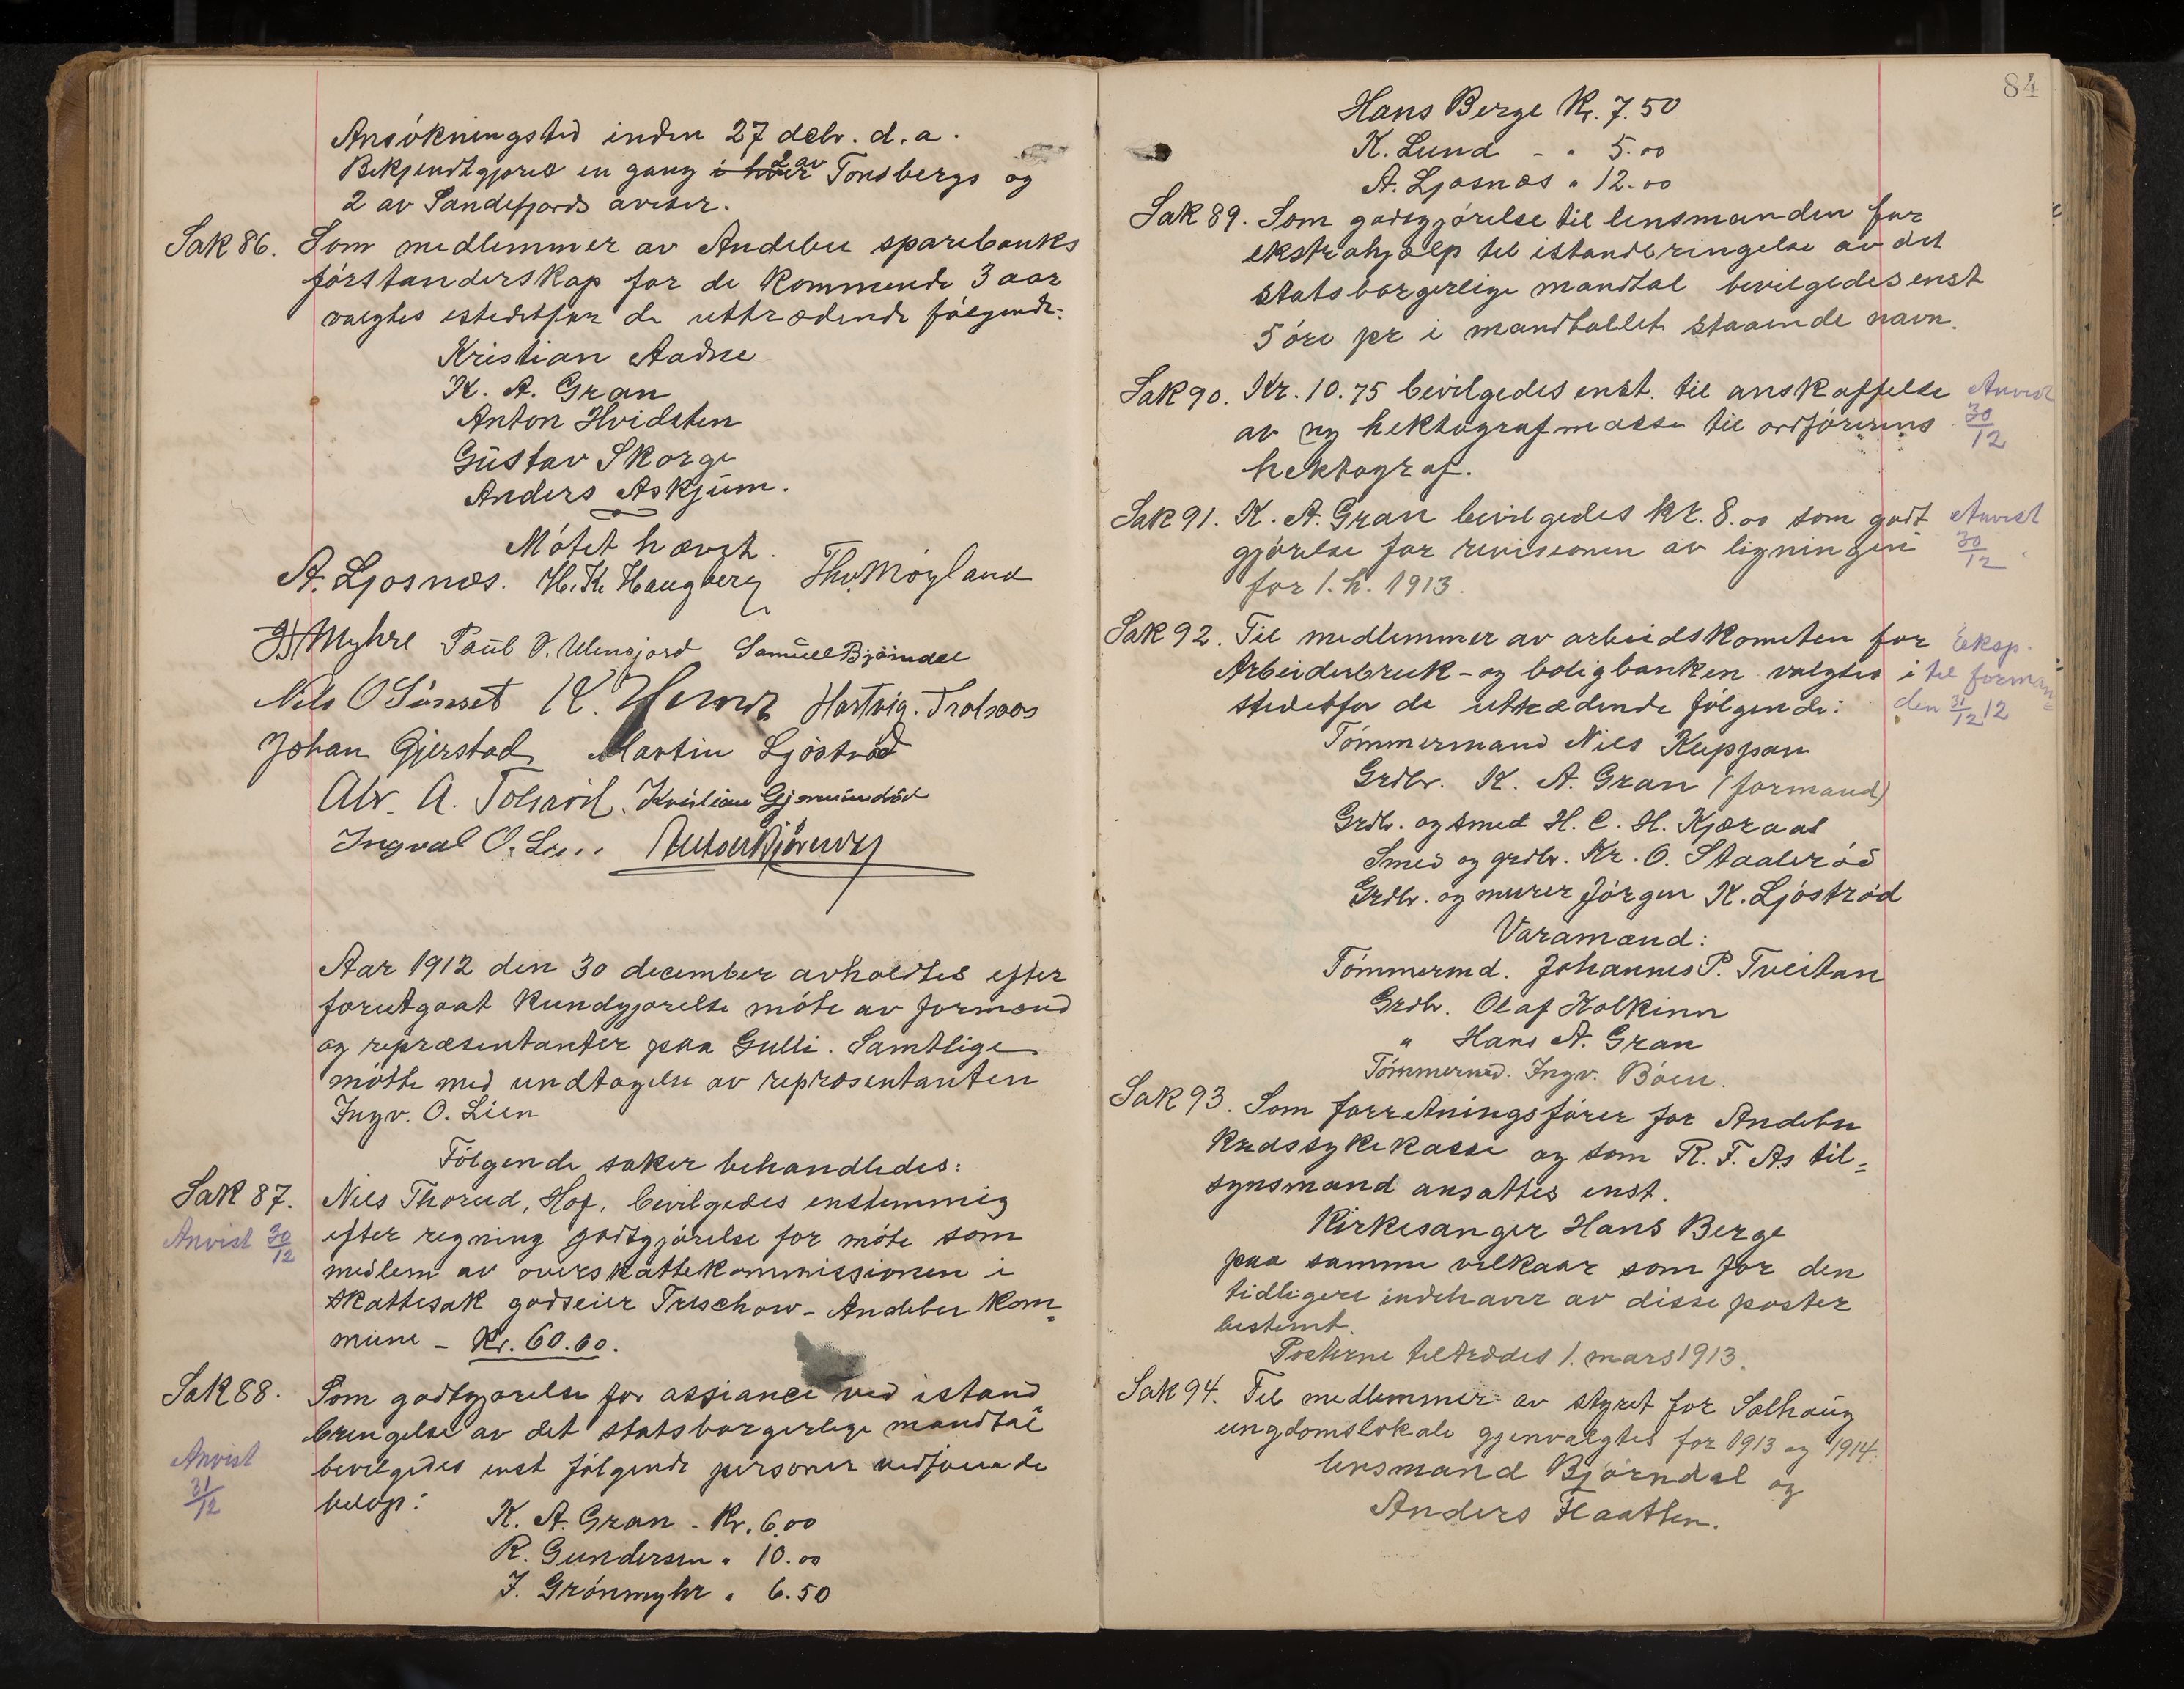 Ansökningstid inden 27 debr. d.a.
Bekjendtgjøres en gang i hver 2 av Tønsbergs og
2 av Sandefjords aviser.
Sak 86. Som medlemmer av Andebu sparebanks
förstanderskap for de kommende 3 aar
valgtes istedetfor de uttrædende følgende:
Kristian Aadne
K. A. Gran
Anton Hvidsten
Gustav Skorge
Anders Askjum.
Mötet hævet.
A. Ljosnæs. H. K. Haugberg Thv. Møyland
Myhre Paul O. Ulensjord Samuel Bjørndal
Nils O Sünset K. Hemr Hartvig. Trolsaas
Johan Gjerstad Martin Ljöströd
Alv. A. Tolsröd. Kristian Gjermundröd
Ingval O. Lien Anton Bjørndal
Aar 1912 den 30 december avholdtes efter
forutgaat kundgjørelse möte av formænd
og repræsentanter paa Gulli. Samtlige
mötte med undtagelse av repræsentanten
Ingv. O. Lien
Fölgende saker behandledes:
Sak 87. Nils Thorud, Hof, bevilgedes enstemmig
Anvist 30/12 efter regning godtgjörelse for möte som
medlem av overskattekommissionen i
skattesak godseier Treschow - Andebu kom=
mune - Kr. 60.60.
Sak 88. Som godtgjørelse for assiance ved istand
bringelse av det statsborgerlige mandtal
Anvist bevilgedes enst følgende personer vedføiede
31/12 beløp:
K. A. Gran - Kr. 6.00
R. Gundersen " 10.00
J. Grönmyhr " 6.50
84
Hans Berge Kr. 7.50
K. Lund - " 5.00
A. Ljosnæs " 12.00
Sak 89. Som godtgjörelse til lensmanden for
ekstrahjælp til istandbringelse av det
statsborgerlige mandtal bevilgedes enst
5 öre pr i mandtallet staaende navn.
Sak 90. Kr. 10.75 bevilgedes enst. til anskaffelse Anvist
av ny hektografmasse til ordførerens 30/12
hektograf.
Sak 91. K. A. Gran bevilgedes kr. 8.00 som godt Anvist
gjörelse for revisionen av ligningen 30/12
for 1. h. 1913.
Sak 92. Til medlemmer av arbeidskomiteen for Eksp.
Arbeiderbruk- og boligbanken valgtes i til forman=
stedetfor de uttrædende fölgende: den 31/12 12
Tömmermand Nils Kleppan
Grdbr. K. A. Gran (formand)
Grdbr. og smed H. C. H. Kjæraas
Smed og grdbr. Kr. O. Staaleröd
Grdbr. og murer Jörgen K. Ljöströd
Varamænd:
Tömmermd. Johannes P. Tveitan
Grdbr. Olaf Holkinn
" Hans A. Gran
Tömmermd. Ingv. Böen.
Sak 93. Som forretningsförer for Andebu
kredssykekasse og som R. F. A.s til=
synsmand ansattes enst.
Kirkesanger Hans Berge
paa samme vilkaar som for den
tidligere indehaver av disse poster
bestemt.
Posterne tiltrædes 1. mars 1913.
Sak 94. Til medlemmer av styret for Solhaug
ungdomslokale gjenvalgtes for 1913 og 1914:
lensmand Bjørndal og
Anders Flaatten.